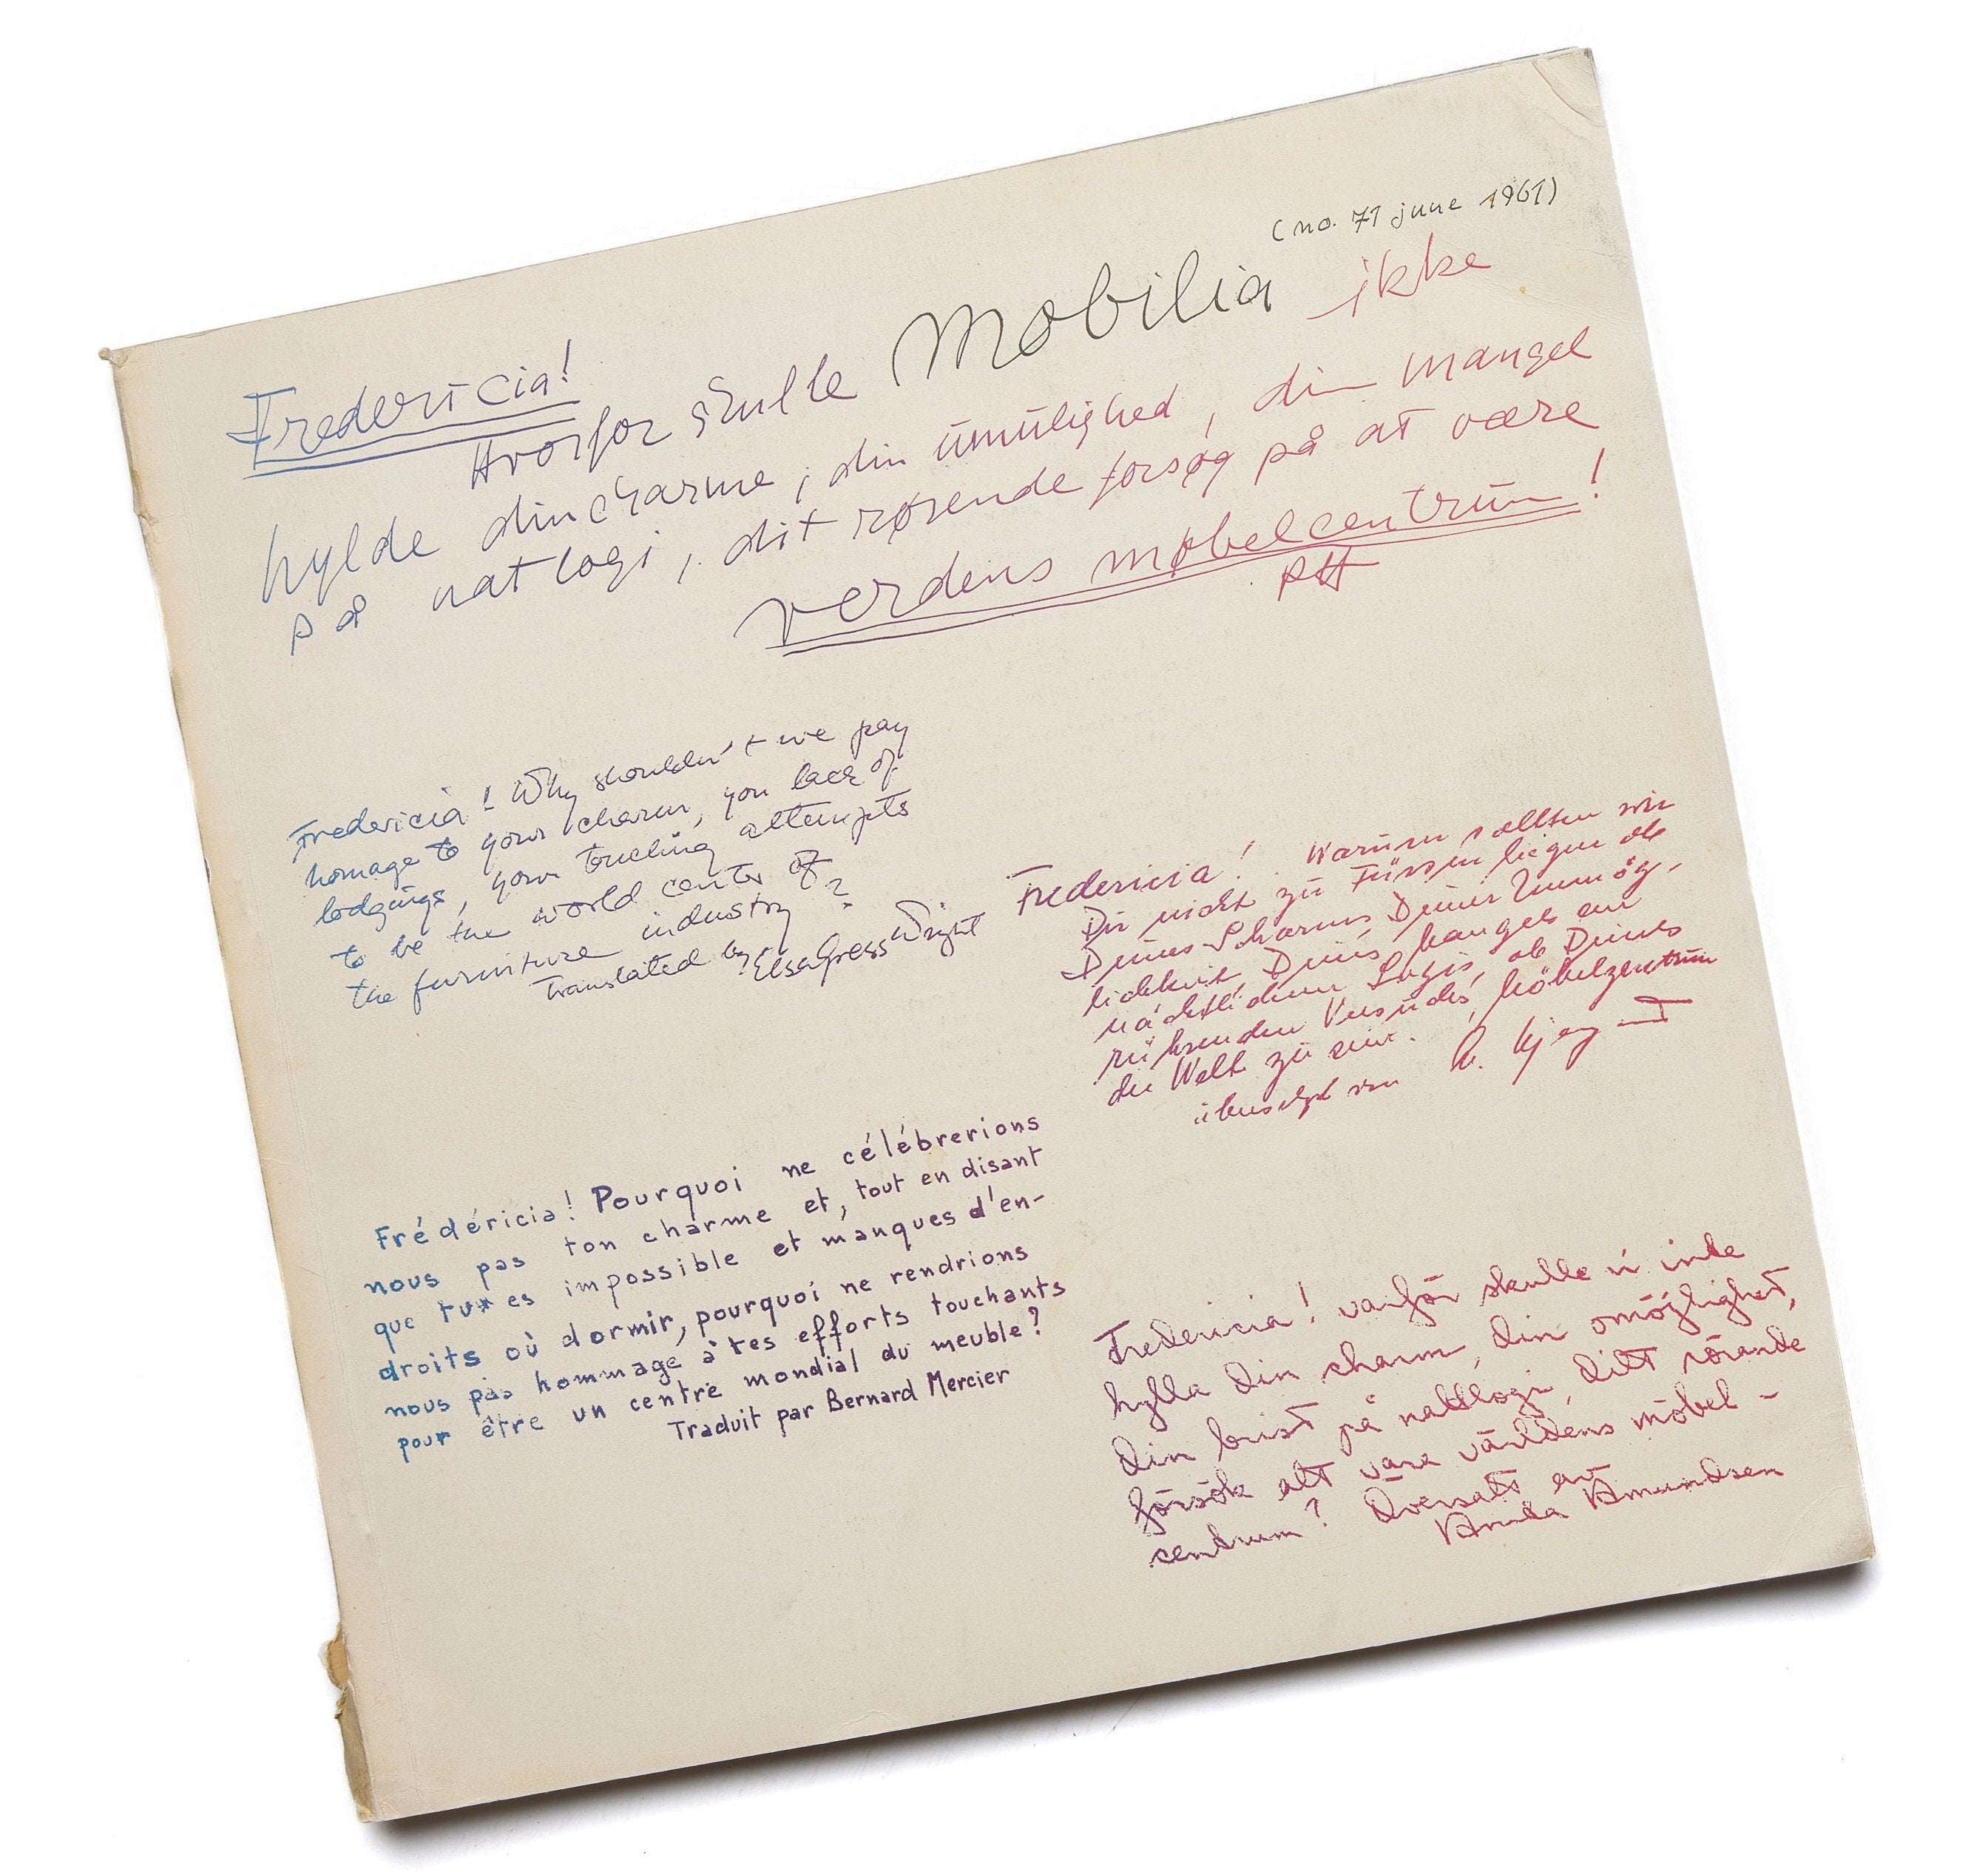 (no. 71 june 1961)
Fredericia!
Hvorfor skulle Mobilia ikke
hylde din charme, din umulighed, din mangel
på natlogi, dit rørende forsøg på at være
verdens møbelcentrum!
PH
Fredericia! Why shouldn't we pay
homage to your charm, you lack of
lodgings, your touching attempts
to be the world center of
the furniture industry?
Translated by Elsa Gress Wright
Fredericia! Warum sollten wir
Dir nicht zu Füssen liegen ob
Deines Scharms, Deiner Unmög-
lichkeit Deines Mangels an
nächtlichem Logis, ob Deines
rührenden Versuchs, Möbelzentrum
der Welt zu sein.
übersetzt von
Frédéricia! Pourquoi ne célébrerions
nous pas ton charme et, tout en disant
que tu es impossible et manques d'en-
droits où dormir, pourquoi ne rendrions
nous pas hommage à tes efforts touchants
pour être un centre mondial du meuble?
Traduit par Bernard Mercier
Fredericia! varför skulle vi inte
hylla din charm, din omöjlighet,
din brist på nattlogi, ditt rörande
försök att vara världens möbel-
centrum? Översatt av
Amundsen